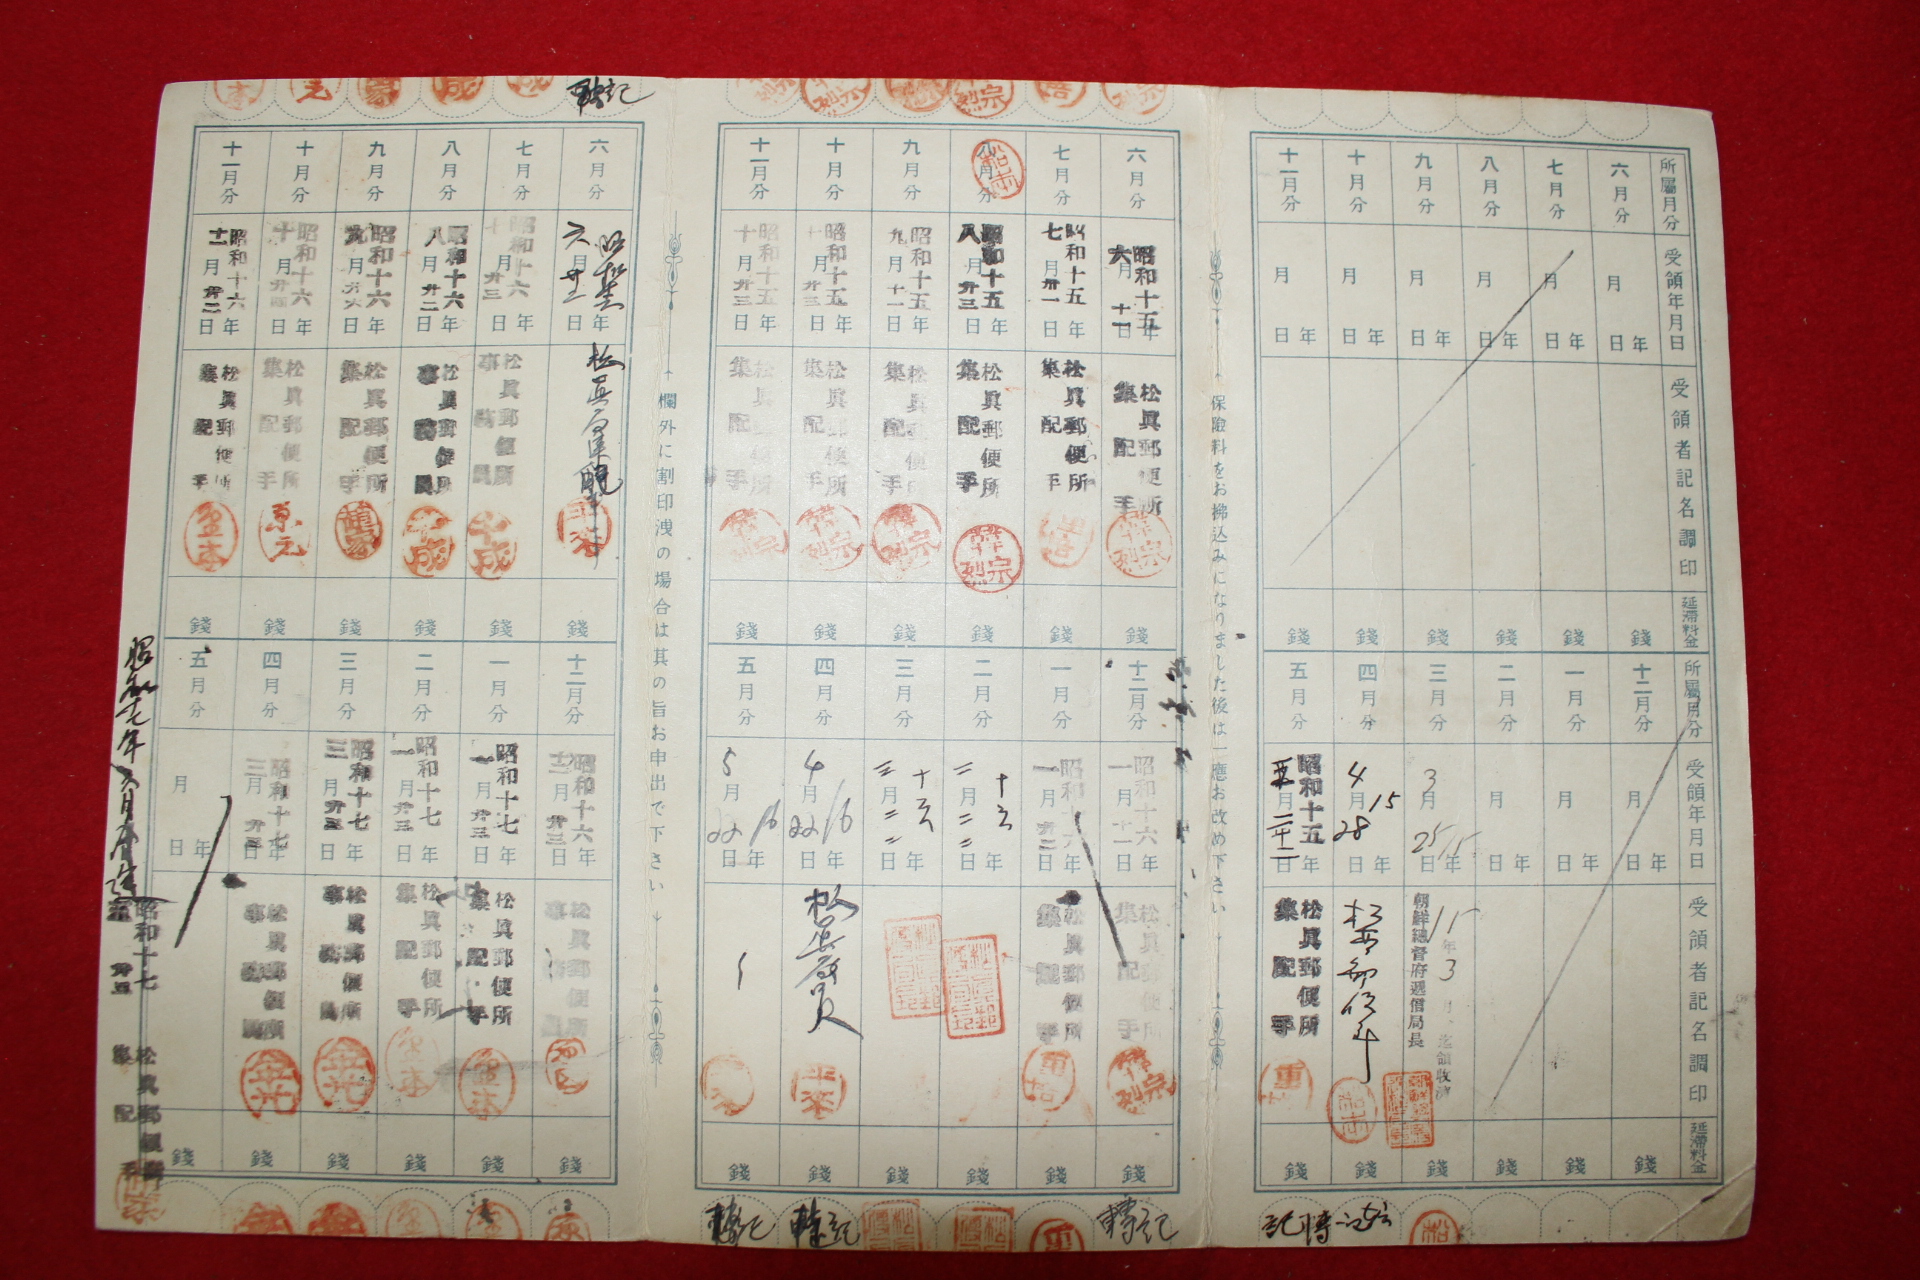 所屬月分
受領年月日
受領者記名調印
延滯料金
六月分
七月分
八月分
九月分
十月分
十一月分
月 日 年
月 日 年
月 日 年
月 日 年
月 日 年
月 日 年
錢
錢
錢
錢
錢
錢
所屬月分
受領年月日
受領者記名調印
延滯料金
十二月分
一月分
二月分
三月分
四月分
五月分
月 日 年
月 日 年
月 日 年
3月 25日 15年
朝鮮總督府遞信局長
15年3月 迄領收濟
4月 28日 15年
昭和十五年 五月二十二日
松眞郵便所
集配手
錢
錢
錢
錢
錢
錢
轉記
保險料をお拂込みになりました後は一應お改め下さい
六月分
昭和十五年 六月十一日
松眞郵便所
集配手
宗烈
錢
七月分
昭和十五年 七月卅一日
松眞郵便所
集配手
錢
八月分
昭和十五年 八月廿三日
松眞郵便所
集配手
宗烈
錢
九月分
昭和十五年 九月十一日
松眞郵便所
集配手
宗烈
錢
十月分
昭和十五年 十月廿三日
松眞郵便所
集配手
宗烈
錢
十一月分
昭和十五年 十月廿三日
松眞郵便所
集配手
宗烈
錢
十二月分
昭和十六年 一月十一日
松眞郵便所
集配手
宗烈
錢
一月分
昭和十六年 一月廿二日
松眞郵便所
集配手
錢
二月分
十六年 二月二二日
錢
三月分
十六年 三月二二日
錢
四月分
4月 22日 16年
錢
五月分
5月 22日 16年
錢
轉記
轉記
轉記
欄外に割印洩の場合は其の旨お申出で下さい
轉記
六月分
六月廿二日 年
錢
七月分
昭和十六年 月廿三日
松眞郵便所
事務員
成
錢
八月分
昭和十六年 八月廿二日
松眞郵便所
事務員
成
錢
九月分
昭和十六年 九月廿六日
松眞郵便所
集配手
錢
十月分
昭和十六年 十月廿四日
松眞郵便所
集配手
元
錢
十一月分
昭和十六年 十一月廿二日
松眞郵便所
集配手
金本
錢
十二月分
昭和十六年 十二月廿三日
松眞郵便所
事務員
錢
一月分
昭和十七年 一月廿三日
松眞郵便所
集配手
金本
錢
二月分
昭和十七年 一月廿三日
松眞郵便所
集配手
金本
錢
三月分
昭和十七年 三月廿三日
松眞郵便所
事務員
錢
四月分
昭和十七年 三月廿三日
松眞郵便所
事務員
錢
五月分
月 日 年
錢
昭和十七年六月
昭和十七
廿五
松眞郵便所
集配手